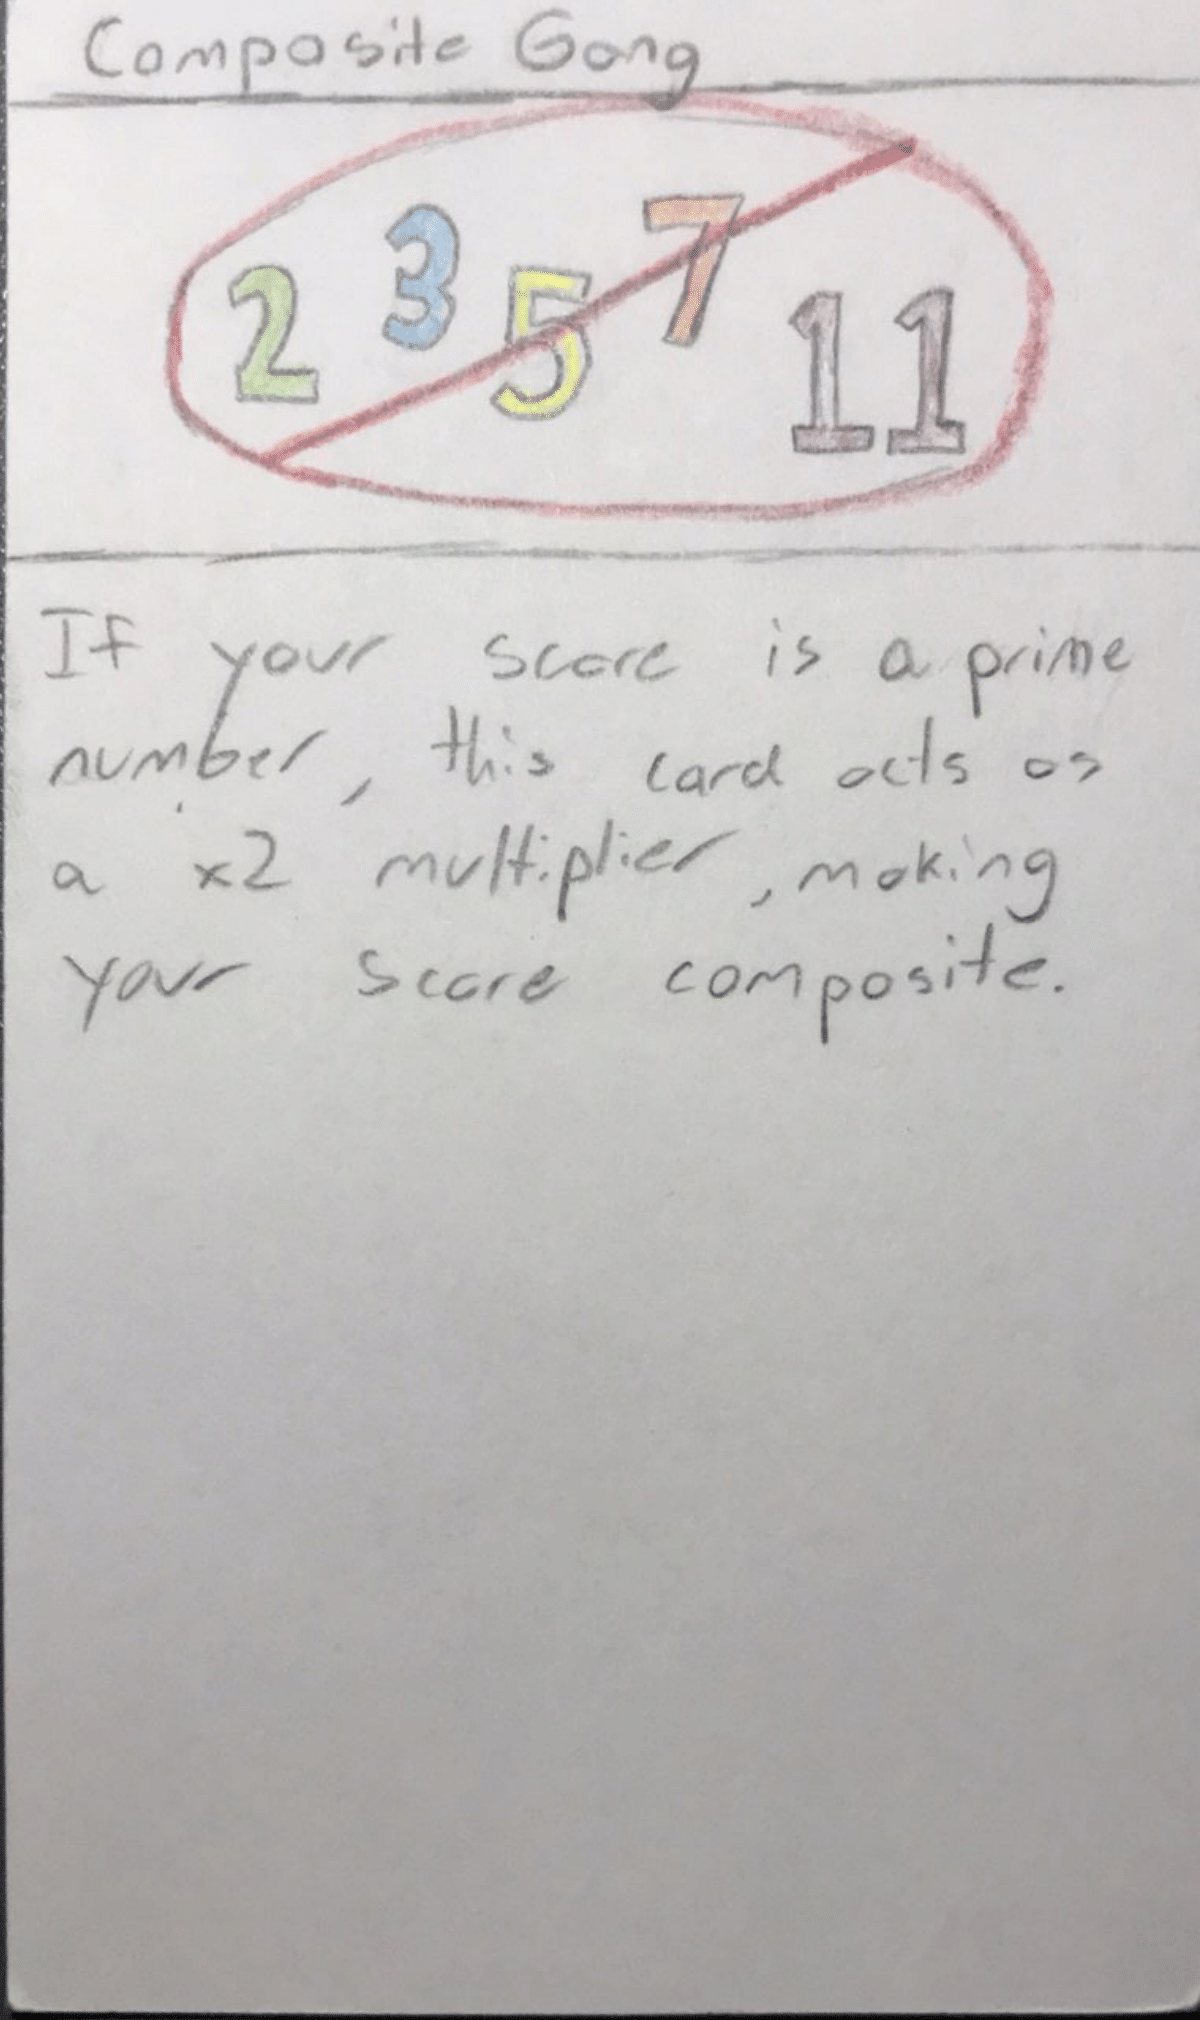 Composite Gang
2 3 5 7 11
If your score is a prime
number, this card acts as
a x2 multiplier, making
your score composite.